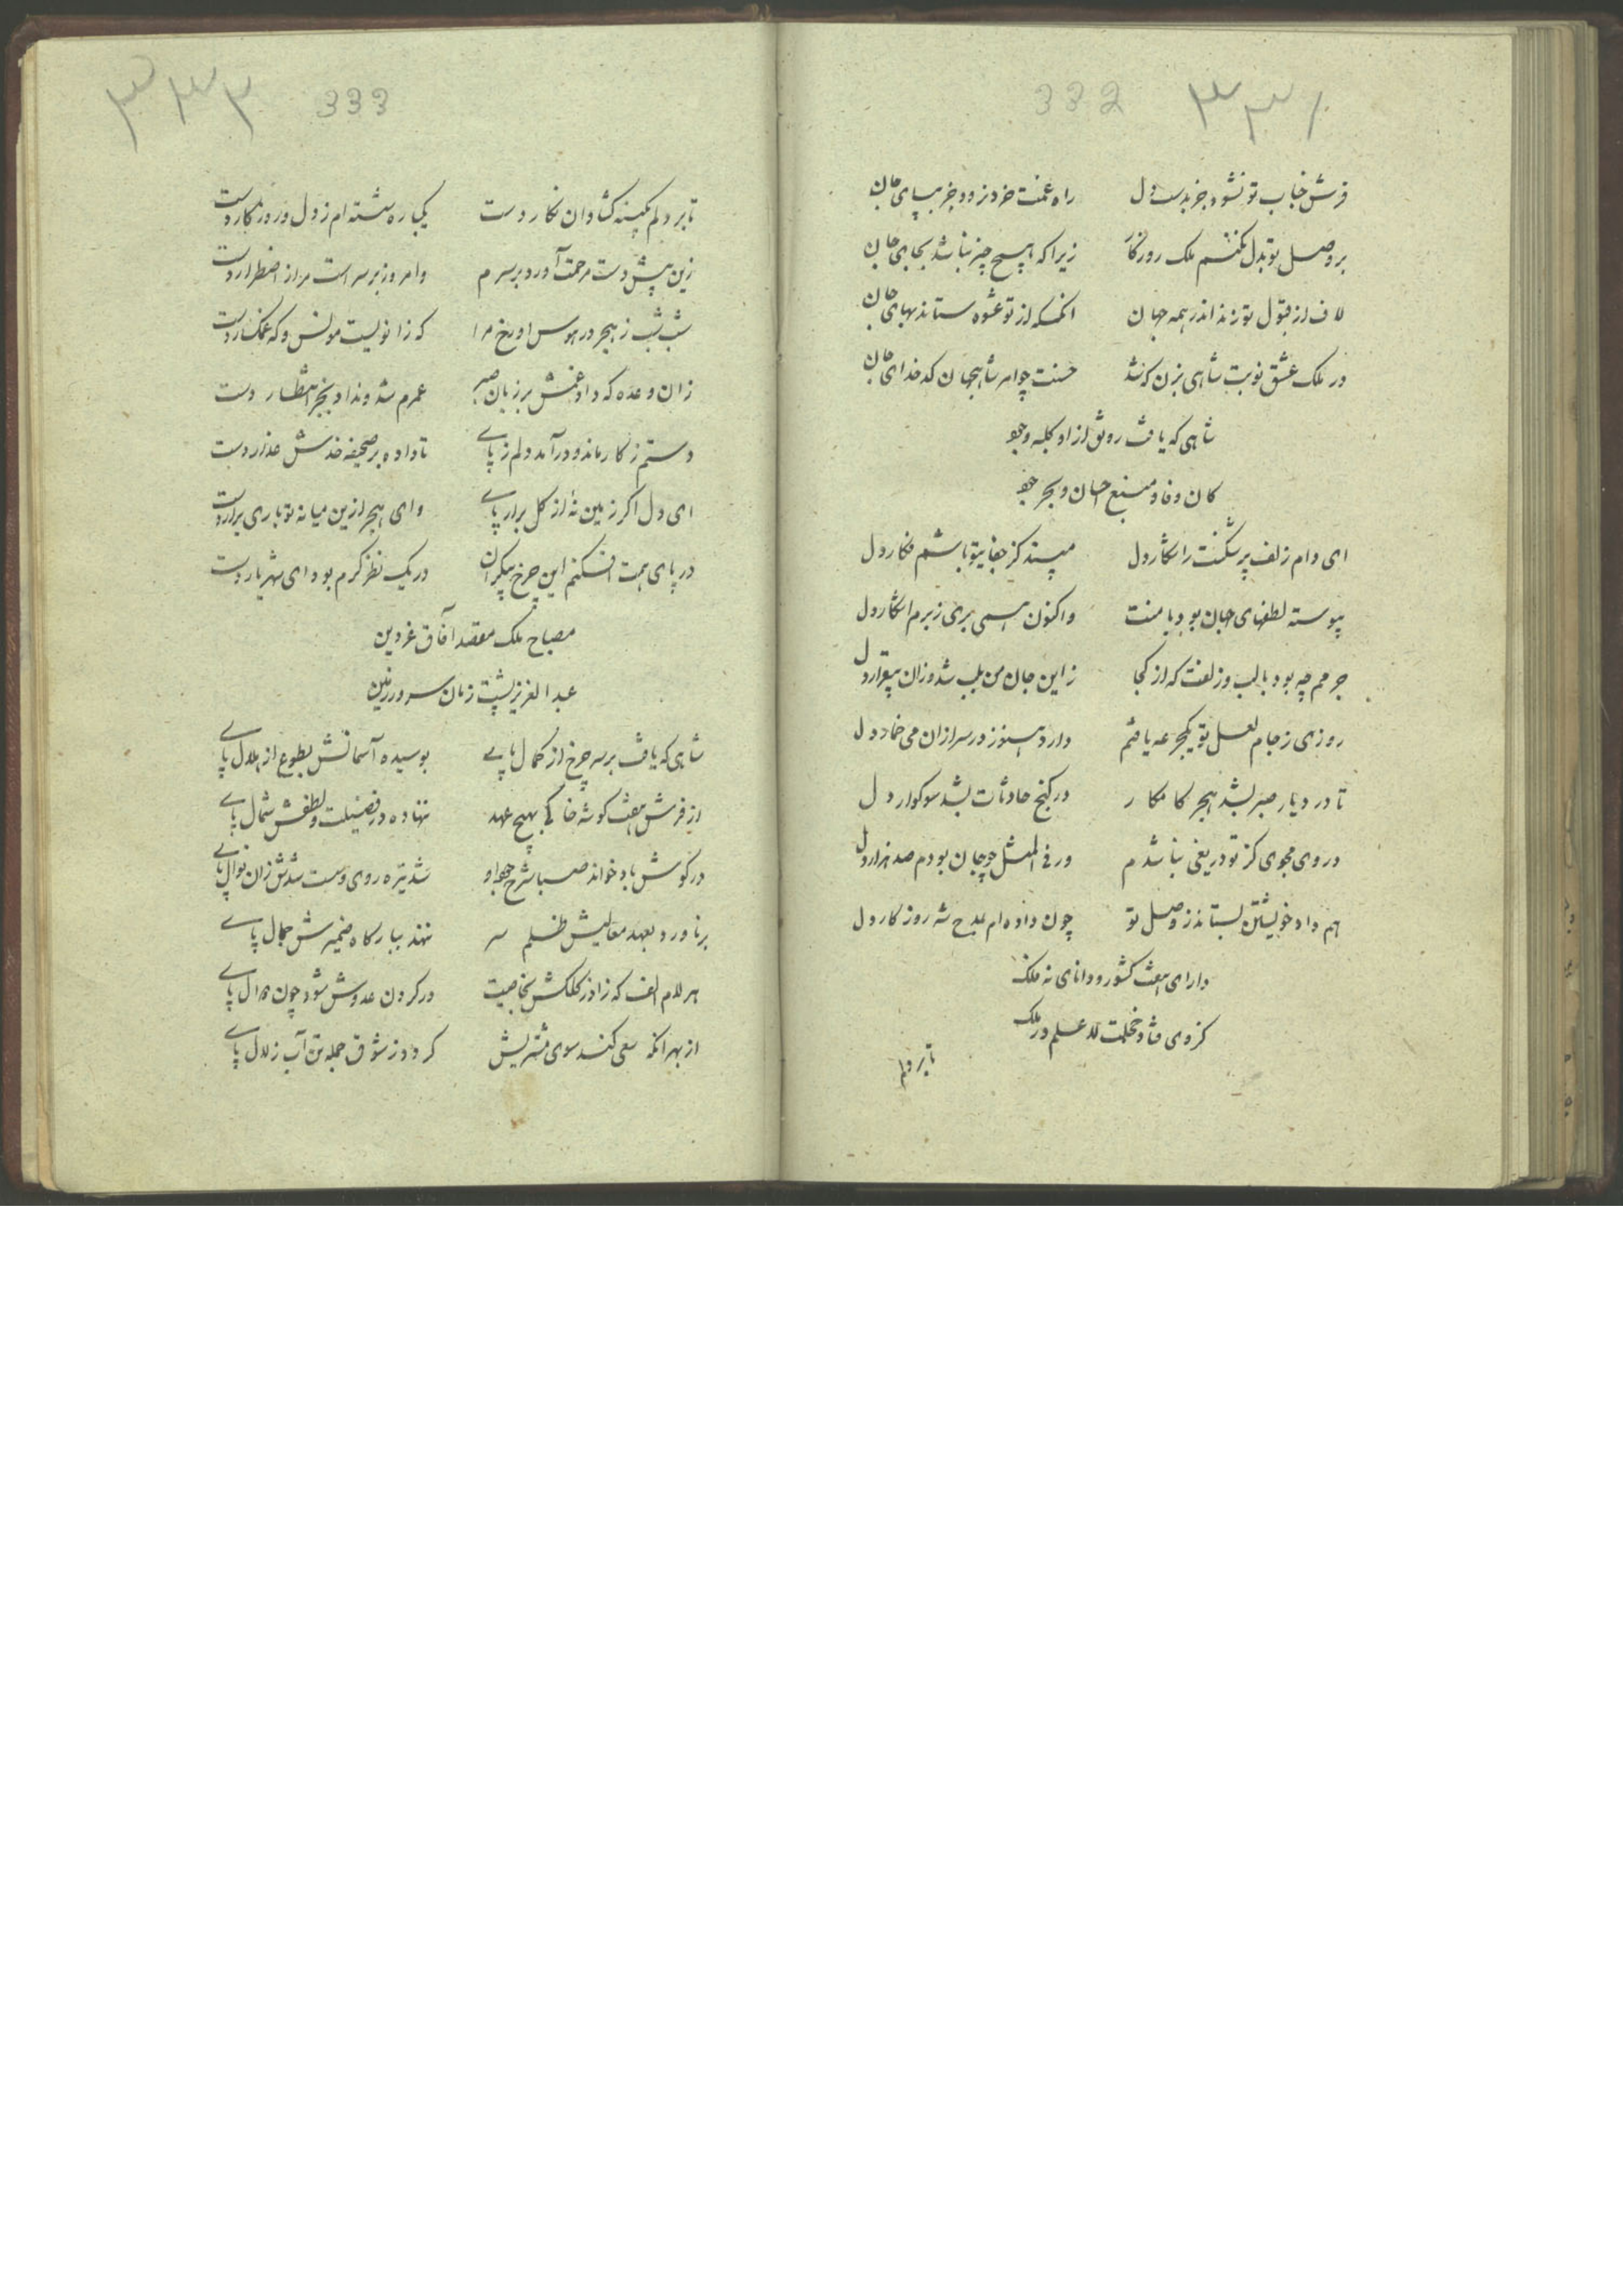 332 ٣٣٢
فرش جناب تو نشود جز بدست دل راه غمت خرد نرود جز بپای جان
بر وصل تو بدل نکنم ملک روزگار زیرا که هیچ چیز نباشد بجای جان
لاف از قبول تو زند اندر همه جهان انکسکه از تو عشوه ستاند بهای جان
در ملک عشق نوبت شاهی بزن که شد حسنت چو امر شاه جهان کدخدای جان
شاهی که یافت رونق ازاو کلبه وجود
کان وفا و منبع احسان و بحر جود
ای دام زلف پر شکنت را شکار دل مپسند کز جفای تو باشم فکار دل
پیوسته لطفهای جهان بود با منت واکنون همی بری ز برم اشکار دل
جرمم چه بود با لب وزلفت که از کجا زاین جان من بلب شد وزان بیقرار دل
روزی ز جام لعل تو یکجرعه یافتم دارد هنوز در سر ازان می خمار دل
تا در دیار صبر بشد هجر کامکار در کنج حادثات بشد سوکوار دل
دروی مجوی کز تو دریغی نباشدم ور فی المثل چو جان بودم صد هزار دل
هم داد خویشتن بستاند ز وصل تو چون داده ام بمدح شه روزکار دل
دارای هفت کشور و دانای نه فلک
کزوی فتاد خجلت للا علم در ملک
تا بر دلم
٣٣٣ 333
تا بر دلم بکینه کشاد ان نکار دست یکباره شسته ام ز دل و روزکار دست
زین پیش دست مرحمت آورد بر سرم وامروز بر سر است مرا ز اضطرار دست
شب شب ز هجر در هوس او رخ مرا که زانویست مونس و که غمکسار دست
زان وعده که داد غمش بر زبان صبر عمرم شد و نداد بجز انتظار دست
دستم ز کار ماند و درآمد دلم ز پای تا داده بر صحیفه خدش عذار دست
ای دل اکر زمین نه از کل برار پای وای هجر ازین میانه تو باری برار دست
در پای همت افکنم این چرخ بیکران در یک نظر کرم بود ای شهریار دست
مصباح ملک مقصد آفاق عز دین
عبد العزیز پشت زمان سرور زمین
شاهی که یافت بر سر چرخ از کمال پای بوسیده آسمانش بطوع از هلال پای
از فرش هفت کوشه خاکی بهیچ عهد ننهاده در فضیلت و لطفش شمال پای
در کوش باد خواند صبا شرح جود او شد تیره روی و سست شدش زان نوال پای
برناورد بعهد معالیش ظلم سر ننهد ببارکاه ضمیرش جمال پای
هر لام الف که زاد ز کلکش بخاصیت در کردن عدوش شود چون دوال پای
از بهر انکه سعی کند سوی مشربش کردد ز شوق جمله تن آب زلال پای